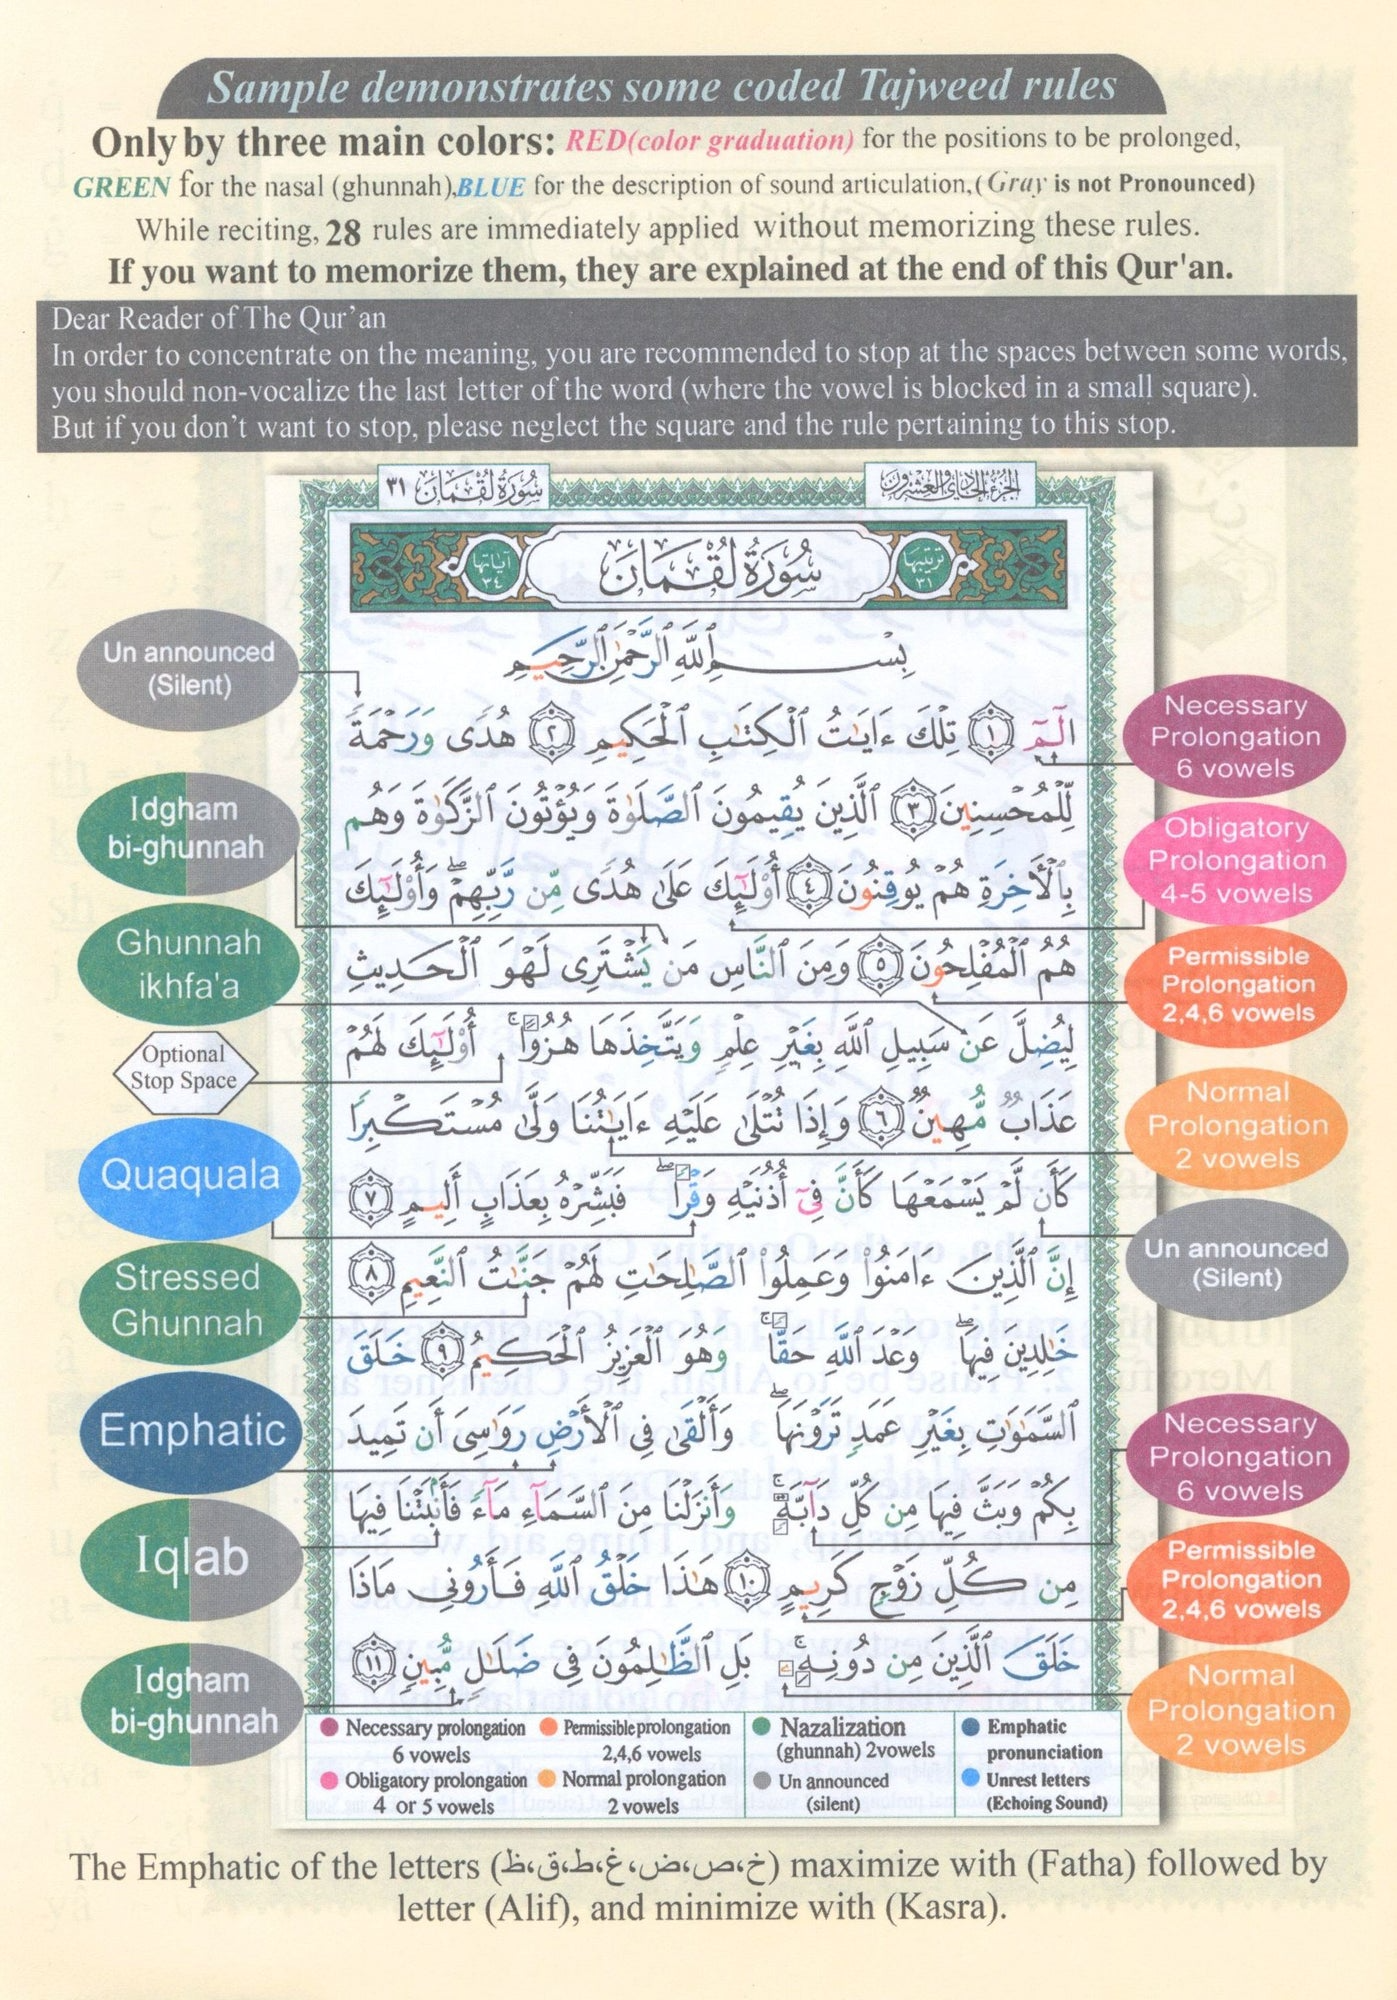 Sample demonstrates some coded Tajweed rules
Only by three main colors: RED(color graduation) for the positions to be prolonged,
GREEN for the nasal (ghunnah),BLUE for the description of sound articulation,(Gray is not Pronounced)
While reciting, 28 rules are immediately applied without memorizing these rules.
If you want to memorize them, they are explained at the end of this Qur'an.
Dear Reader of The Qur'an
In order to concentrate on the meaning, you are recommended to stop at the spaces between some words,
you should non-vocalize the last letter of the word (where the vowel is blocked in a small square).
But if you don't want to stop, please neglect the square and the rule pertaining to this stop.
سُورَةُ لُقْمَان ٣١
الجزء الحادي والعشرون
ترتيبها ٣١
سُورَةُ لُقْمَان
آياتها ٣٤
بِسْمِ ٱللَّهِ ٱلرَّحْمَٰنِ ٱلرَّحِيمِ
الٓمٓ ١ تِلْكَ ءَايَٰتُ ٱلْكِتَٰبِ ٱلْحَكِيمِ ٢ هُدًى وَرَحْمَةً
لِّلْمُحْسِنِينَ ٣ ٱلَّذِينَ يُقِيمُونَ ٱلصَّلَوٰةَ وَيُؤْتُونَ ٱلزَّكَوٰةَ وَهُم
بِٱلْأَخِرَةِ هُمْ يُوقِنُونَ ٤ أُوْلَٰٓئِكَ عَلَىٰ هُدًى مِّن رَّبِّهِمْ ۖ وَأُوْلَٰٓئِكَ
هُمُ ٱلْمُفْلِحُونَ ٥ وَمِنَ ٱلنَّاسِ مَن يَشْتَرِى لَهْوَ ٱلْحَدِيثِ
لِيُضِلَّ عَن سَبِيلِ ٱللَّهِ بِغَيْرِ عِلْمٍ وَيَتَّخِذَهَا هُزُوًا ۚ أُوْلَٰٓئِكَ لَهُمْ
عَذَابٌ مُّهِينٌ ٦ وَإِذَا تُتْلَىٰ عَلَيْهِ ءَايَٰتُنَا وَلَّىٰ مُسْتَكْبِرًا
كَأَن لَّمْ يَسْمَعْهَا كَأَنَّ فِىٓ أُذُنَيْهِ وَقْرًا ۖ فَبَشِّرْهُ بِعَذَابٍ أَلِيمٍ ٧
إِنَّ ٱلَّذِينَ ءَامَنُوا۟ وَعَمِلُوا۟ ٱلصَّٰلِحَٰتِ لَهُمْ جَنَّٰتُ ٱلنَّعِيمِ ٨
خَٰلِدِينَ فِيهَا ۖ وَعْدَ ٱللَّهِ حَقًّا ۚ وَهُوَ ٱلْعَزِيزُ ٱلْحَكِيمُ ٩ خَلَقَ
ٱلسَّمَٰوَٰتِ بِغَيْرِ عَمَدٍ تَرَوْنَهَا ۖ وَأَلْقَىٰ فِى ٱلْأَرْضِ رَوَٰسِىَ أَن تَمِيدَ
بِكُمْ وَبَثَّ فِيهَا مِن كُلِّ دَآبَّةٍ ۚ وَأَنزَلْنَا مِنَ ٱلسَّمَآءِ مَآءً فَأَنۢبَتْنَا فِيهَا
مِن كُلِّ زَوْجٍ كَرِيمٍ ١٠ هَٰذَا خَلْقُ ٱللَّهِ فَأَرُونِى مَاذَا
خَلَقَ ٱلَّذِينَ مِن دُونِهِۦ ۚ بَلِ ٱلظَّٰلِمُونَ فِى ضَلَٰلٍ مُّبِينٍ ١١
Un announced
(Silent)
Idgham
bi-ghunnah
Ghunnah
ikhfa'a
Optional
Stop Space
Quaquala
Stressed
Ghunnah
Emphatic
Iqlab
Idgham
bi-ghunnah
Necessary
Prolongation
6 vowels
Obligatory
Prolongation
4-5 vowels
Permissible
Prolongation
2,4,6 vowels
Normal
Prolongation
2 vowels
Un announced
(Silent)
Necessary
Prolongation
6 vowels
Permissible
Prolongation
2,4,6 vowels
Normal
Prolongation
2 vowels
Necessary prolongation
6 vowels
Permissible prolongation
2,4,6 vowels
Nazalization
(ghunnah) 2vowels
Emphatic
pronunciation
Obligatory prolongation
4 or 5 vowels
Normal prolongation
2 vowels
Un announced
(silent)
Unrest letters
(Echoing Sound)
The Emphatic of the letters (خ،ص،ض،غ،ط،ق،ظ) maximize with (Fatha) followed by
letter (Alif), and minimize with (Kasra).